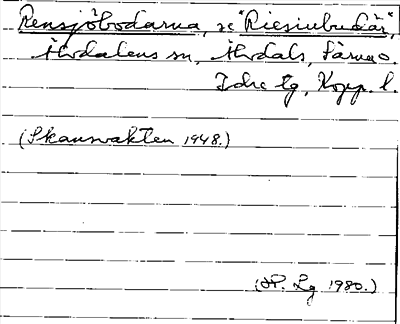 Rensjöbodarna, se "Riesiubudär",
Älvdalens sn, Älvdals, Särna o.
Idre tg, Kopp. l.
(Skansvakten 1948.)
(SP. Lg 1980.)